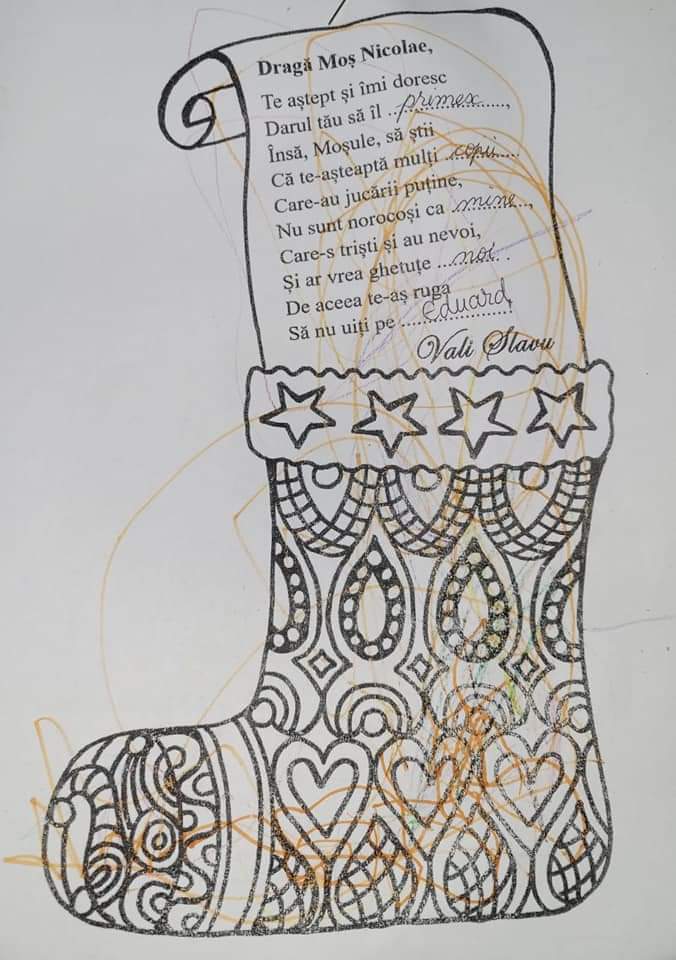 Dragă Moș Nicolae,
Te aștept și îmi doresc
Darul tău să îl ..primesc..........,
Însă, Moșule, să știi
Că te-așteaptă mulți ..copii......
Care-au jucării puține,
Nu sunt norocoși ca ..mine..,
Care-s triști și au nevoi,
Și ar vrea ghetuțe ...noi. .
De aceea te-aș ruga
Să nu uiți pe ....Eduard,
Vali Slavu